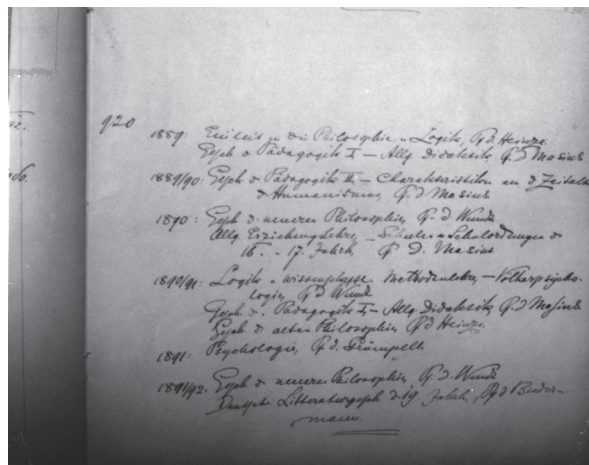 920.
1889: Einleit. in die Philosophie u. Logik, Pf. d. Heinze.
Gesch. d. Pädagogik I – Allg. Didaktik, Pf. d. Masius
1889/90: Gesch. d. Pädagogik II – Charakteristiken aus d. Zeitalt.
d. Humanismus, Pf. d. Masius
1890: Gesch. d. neueren Philosophie, Pf. d. Wundt
Allg. Erziehungslehre, – Schulen u. Schulordnungen d.
16. u. 17. Jahrh., Pf. D. Masius
1890/91: Logik u. wissenschaftl. Methodenlehre, – Völkerpsycho-
logie, Pf d Wundt
Gesch. d. Pädagogik I, – Allg. Didaktik, Pf. d Masius
Gesch. d. alten Philosophie, Pf d Heinze.
1891: Psychologie, Pf. d. Strümpell
1891/92: Gesch. d. neueren Philosophie, Pf. d. Wundt
Deutsche Litteraturgesch. d. 19. Jahrh., Pf d Bieder-
mann.